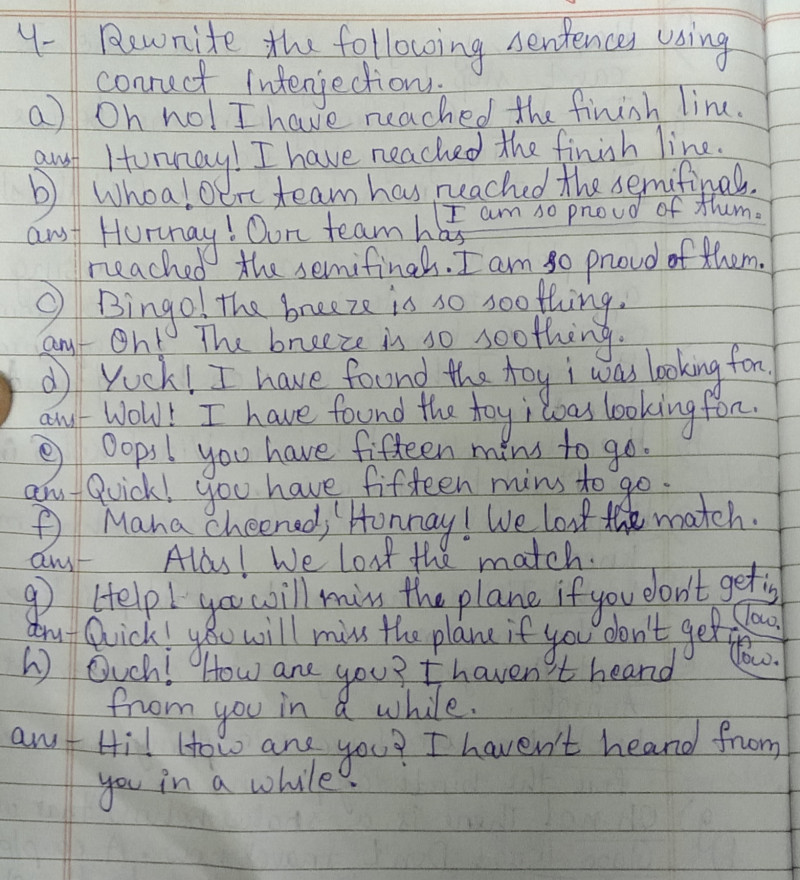 4- Rewrite the following sentences using
correct Interjections.
a) Oh no! I have reached the finish line.
ans- Hurray! I have reached the finish line.
b) Whoa! Our team has reached the semifinals.
I am so proud of them.
ans- Hurray! Our team has
reached the semifinals. I am so proud of them.
c) Bingo! The breeze is so soothing.
ans- Oh! The breeze is so soothing.
d) Yuck! I have found the toy i was looking for.
ans- Wow! I have found the toy i was looking for.
e) Oops! you have fifteen mins to go.
ans- Quick! you have fifteen mins to go.
f) Maha cheered, "Hurray! We lost the match.
ans- Alas! We lost the match.
g) Help! you will miss the plane if you don't get in
now.
ans- Quick! you will miss the plane if you don't get in
now.
h) Ouch! How are you? I haven't heard
from you in a while.
ans- Hi! How are you? I haven't heard from
you in a while.